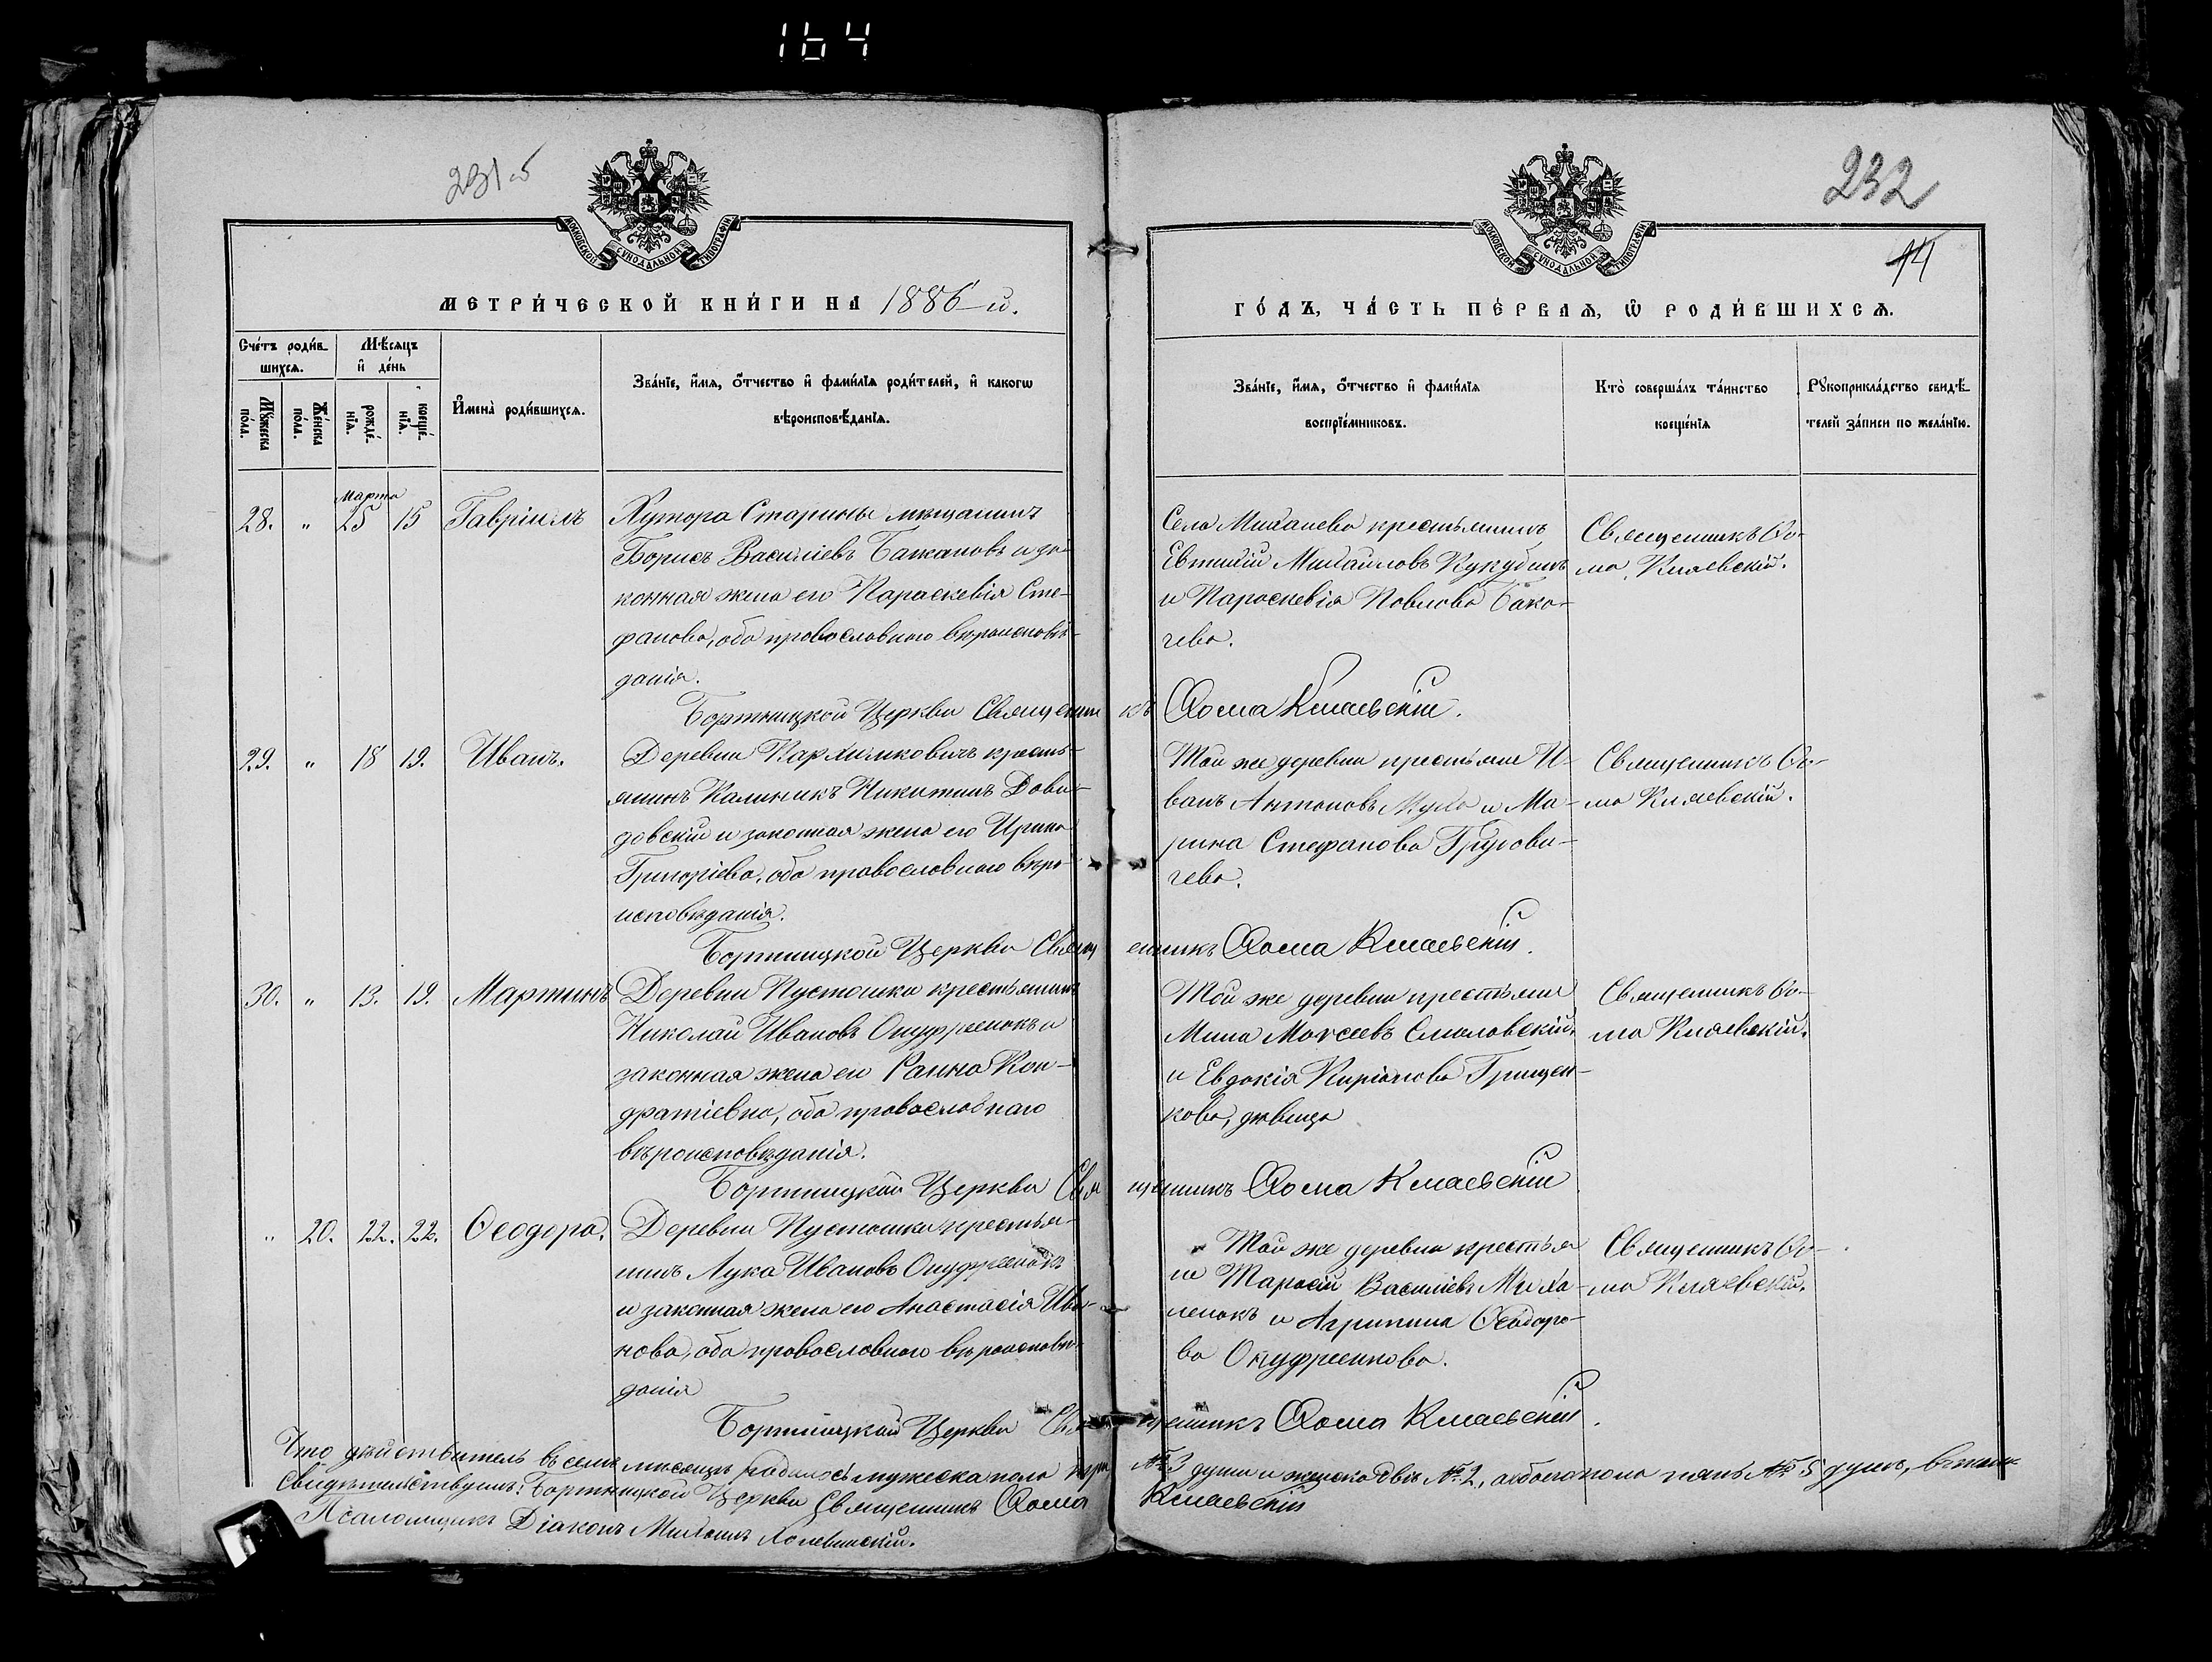 164
231об
232
14
МОСКОВСКОЙ СѴНОДАЛЬНОЙ ТИПОГРАФІИ
МОСКОВСКОЙ СѴНОДАЛЬНОЙ ТИПОГРАФІИ
МЕТРИ́ЧЕСКОЙ КНИ́ГИ НА 1886-й.
ГО́ДЪ, ЧА́СТЬ ПЕ́РВАѦ, Ѡ РОДИ́ВШИХСѦ.
Сче́тъ роди́в-
шихсѧ.
Мѣ́сѧцъ
и҆ де́нь
Мꙋ́жеска
по́ла.
Же́нска
по́ла.
рожде́-
нїѧ.
креще́-
нїѧ.
И҆мена̀ роди́вшихсѧ.
Зва́нїе, и҆́мѧ, о҆́тчество и҆ фами́лїѧ роди́телей, и҆ какогѡ
вѣроисповѣ́данїѧ.
Зва́нїе, и҆́мѧ, о҆́тчество и҆ фами́лїѧ
воспрїе́мниковъ.
Кто̀ соверша́лъ та́инство
креще́нїѧ
Рꙋкоприкла́дство свидѣ́-
телей за́писи по жела́нїю.
Марта
28. " 25 15 Гавріилъ
Хутора Старины мѣщанинъ
Борисъ Василіевъ Бажановъ и за-
конная жена его Параскевія Сте-
фанова, оба православнаго вѣроисповѣ-
данія.
Села Михаиева крестьянинъ
Евтихій Михайловъ Кукубинъ
и Параскевія Павлова Бака-
чева.
Священникъ Ѳо-
ма Кляевскій.
Бортницкой Церкви Священникъ Ѳома Кляевскій.
29. " 18 19. Иванъ.
Деревни Кархимковичъ кресть-
янинъ Калиникъ Никитинъ Дови-
довскій и законная жена его Ирина
Григоріева, оба православнаго вѣро-
исповѣданія.
Той же деревни крестьяне И-
ванъ Антоновъ Муха и Ма-
рина Стефанова
чева.
Священникъ Ѳо-
ма Кляевскій.
Бортницкой Церкви Священникъ Ѳома Кляевскій.
30. " 13. 19. Мартинъ
Деревни Пустошки крестьянинъ
Николай Ивановъ Онуфреенокъ и
законная жена его Ганна Кон-
дратіевна, оба православнаго
вѣроисповѣданія.
Той же деревни крестьяне
Мина Моѵсеевъ Смоловскій
и Евдокія Киріанова Грищен-
кова, дѣвица
Священникъ Ѳо-
ма Кляевскій.
Бортницкой Церкви Священникъ Ѳома Кляевскій
" 20. 22. 22. Ѳеодора.
Деревни Пустошки крестья-
нинъ Лука Ивановъ Онуфреенокъ
и законная жена его Анастасія Ива-
нова, оба православнаго вѣроисповѣ-
данія
Той же деревни крестья-
не Тарасій Василіевъ Миха-
ленокъ и Агрипина Ѳеодоро-
ва Онуфреенкова.
Священникъ Ѳо-
ма Кляевскій.
Бортницкой Церкви Священникъ Ѳома Кляевскій.
Что дѣйствитель въ семъ мѣсяцѣ родилось мужеска пола три № 3 души и женска двѣ № 2, а обоего пола пять № 5 душъ, въ томъ
Свидѣтельствуемъ: Бортницкой Церкви Священникъ Ѳома Кляевскій
Псаломщикъ Діаконъ Михаилъ